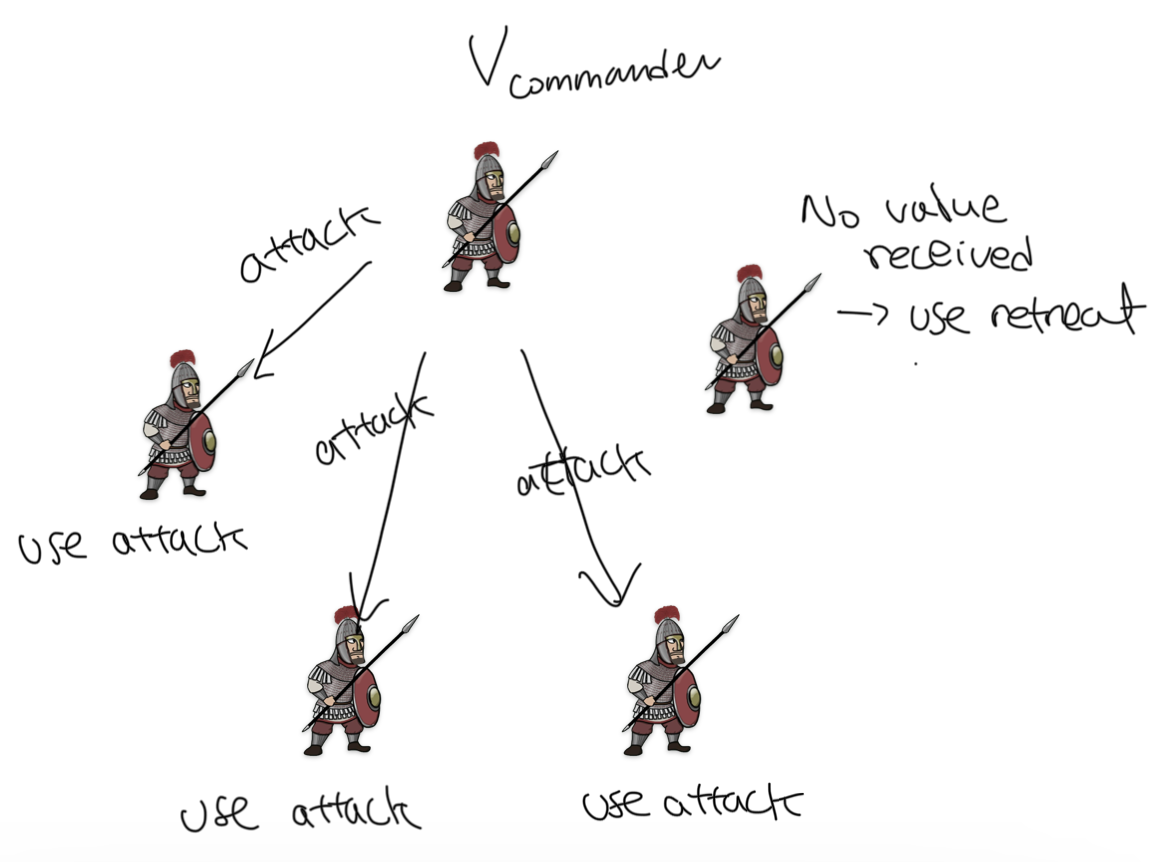 V commander
attack
No value
received
→ use retreat
attack
attack
use attack
use attack
use attack